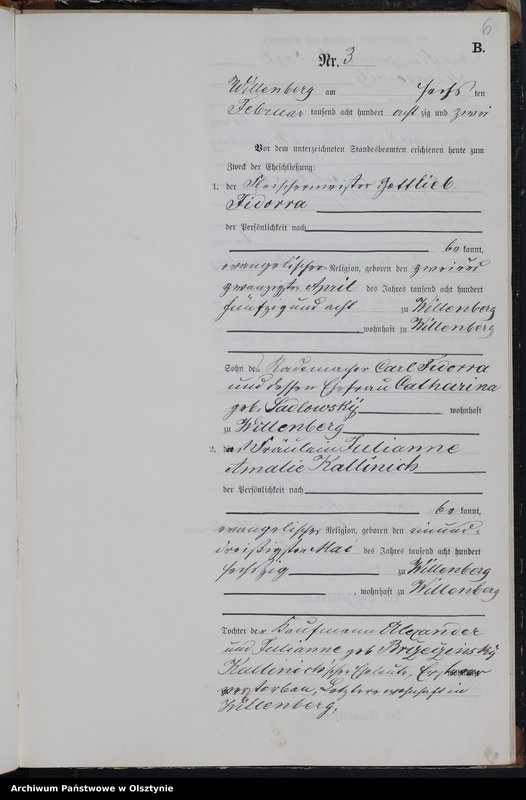 6
B.
Nr. 3
Willenberg am sechs ten
Februar tausend acht hundert acht zig und zwei
Vor dem unterzeichneten Standesbeamten erschienen heute zum
Zweck der Eheschließung:
1. der Fleischermeister Gottlieb
Fidorra
der Persönlichkeit nach
be kannt,
evangelischer Religion, geboren den zweiund
zwanzigsten April des Jahres tausend acht hundert
fünfzig und acht zu Willenberg
, wohnhaft zu Willenberg
Sohn des Rademacher Carl Fidorra
und dessen Ehefrau Catharina
geb. Sadlowsky wohnhaft
zu Willenberg
2. die Fräulein Julianne
Amalie Kallinich
der Persönlichkeit nach
be kannt,
evangelischer Religion, geboren den einund-
dreißigsten Mai des Jahres tausend acht hundert
sechzig zu Willenberg
, wohnhaft zu Willenberg
Tochter der Kaufmann Alexander
und Julianne geb
Kallinich'schen Eheleute, Ersterer
verstorben, Letztere wohnhaft in
Willenberg.
Archiwum Państwowe w Olsztynie